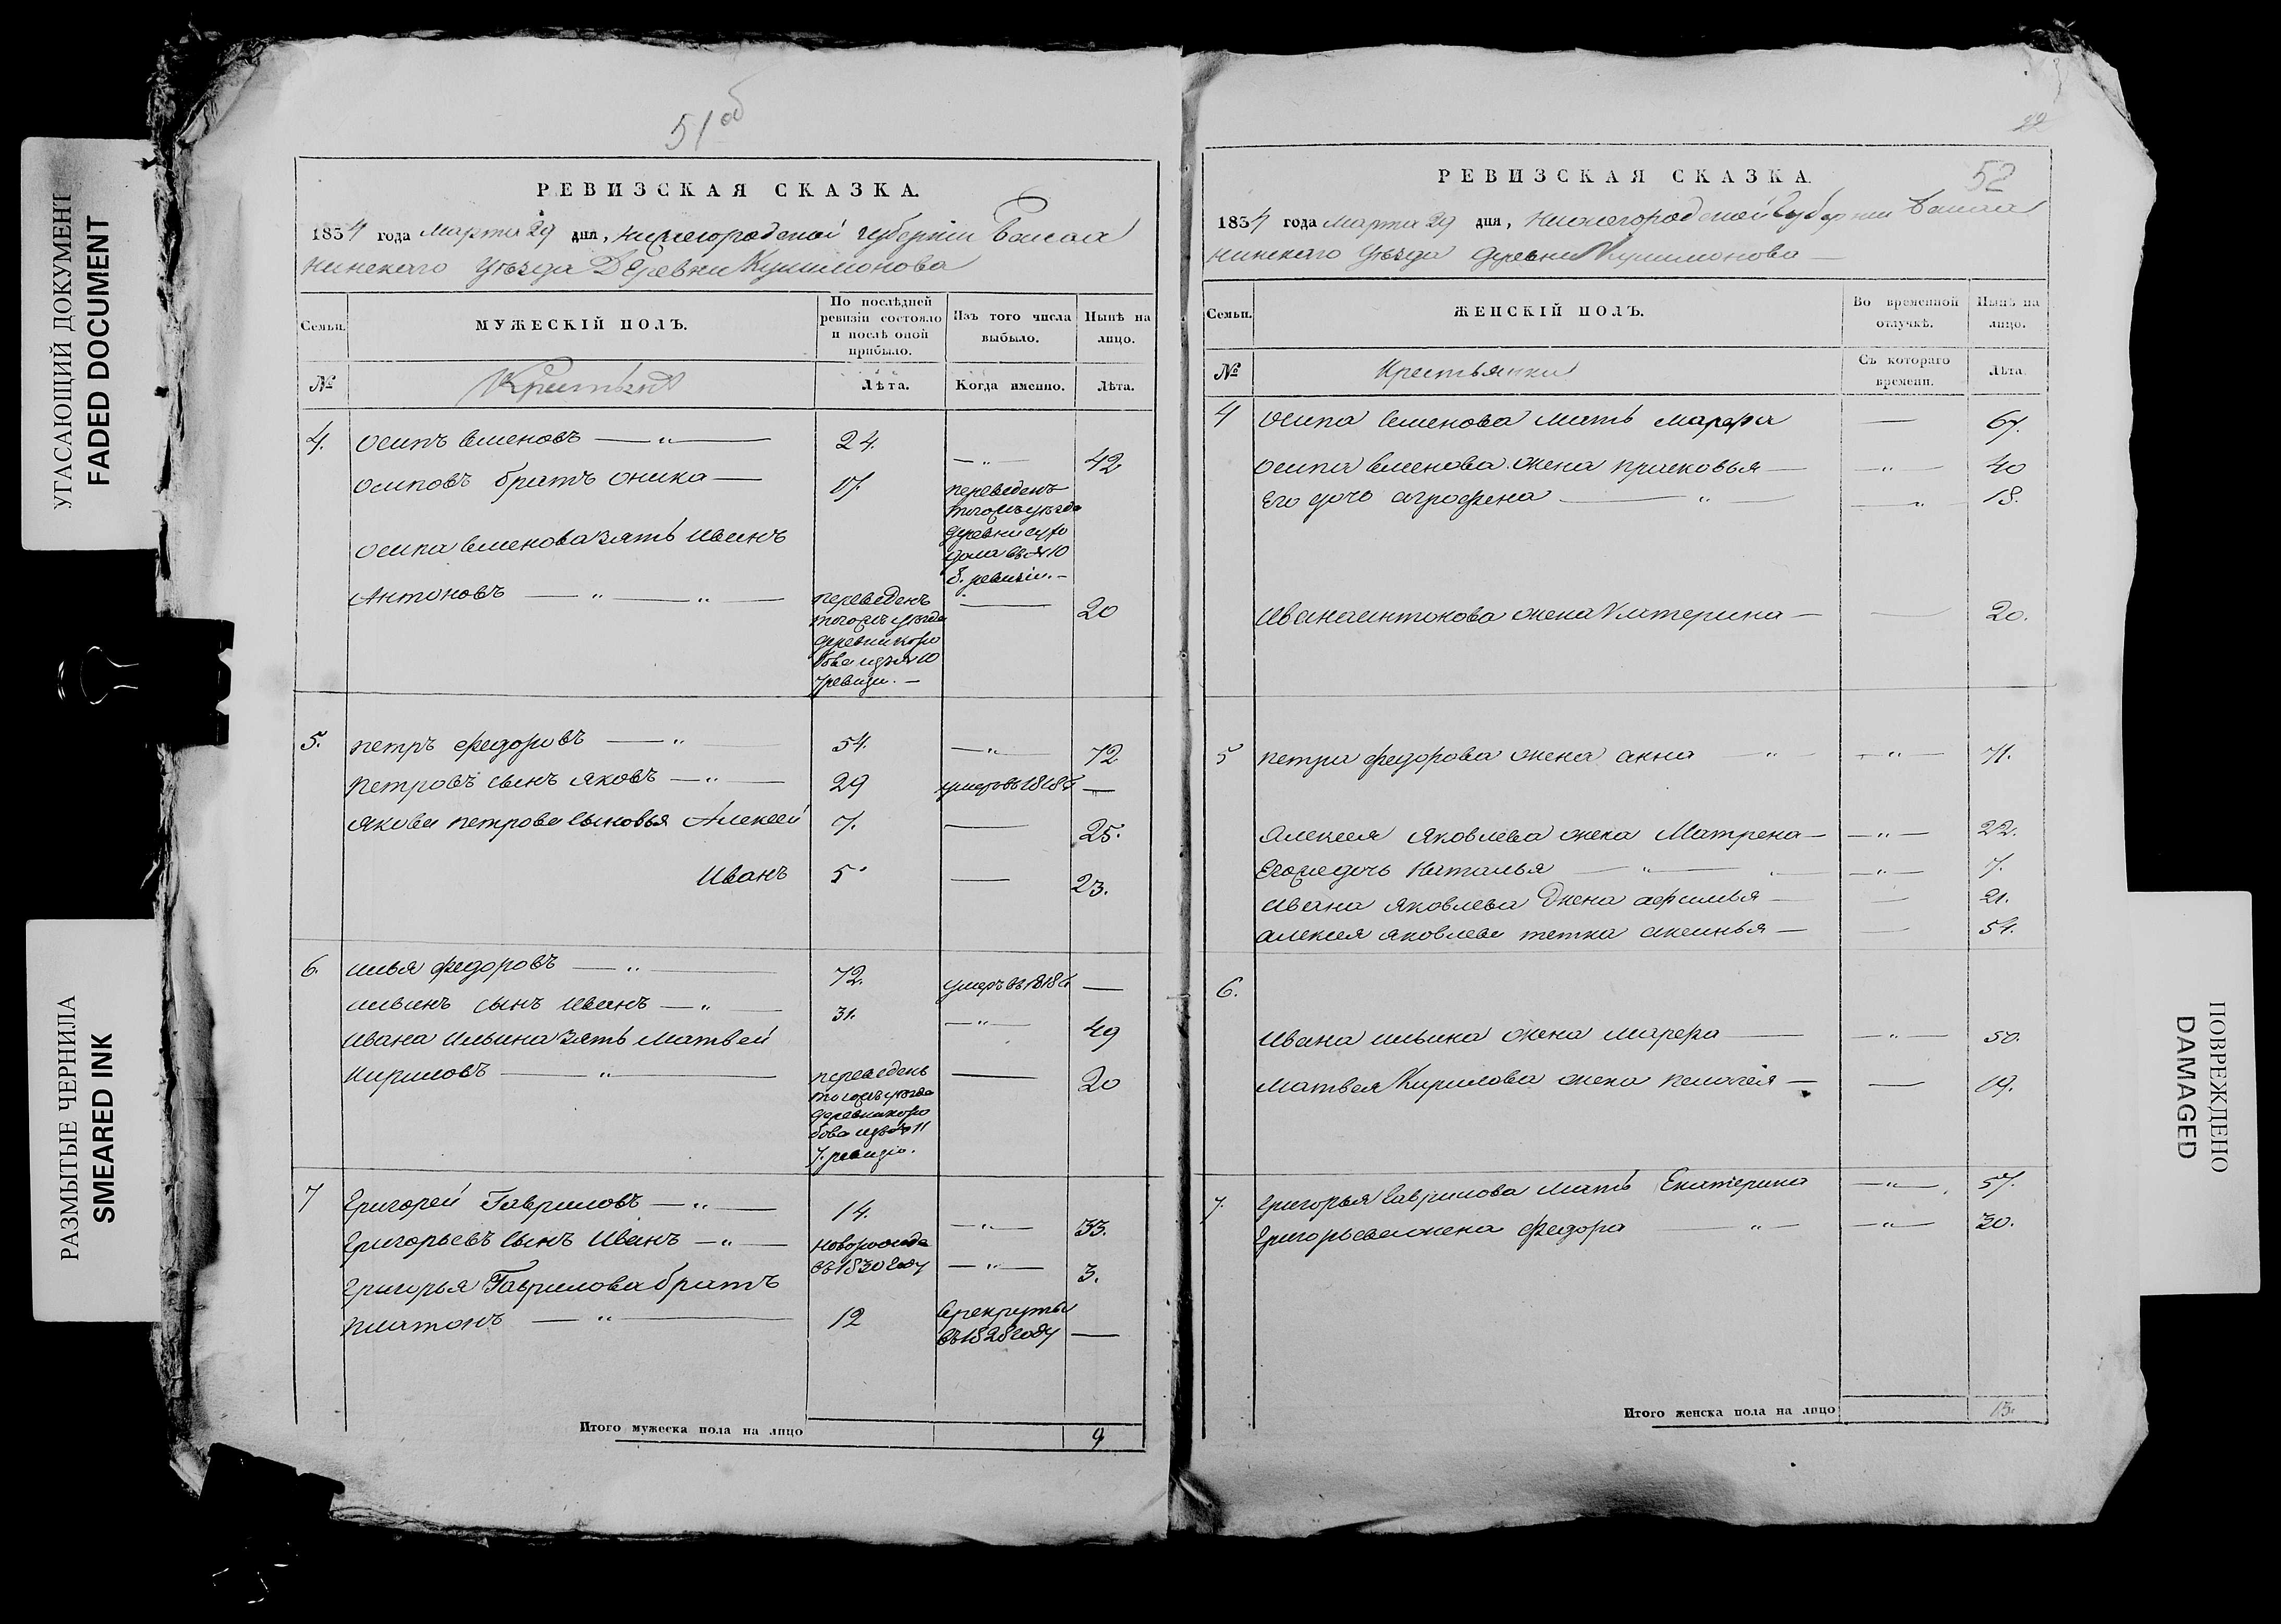 УГАСАЮЩИЙ ДОКУМЕНТ
FADED DOCUMENT
РАЗМЫТЫЕ ЧЕРНИЛА
SMEARED INK
51 об
РЕВИЗСКАЯ СКАЗКА.
1834 года Марта 29 дня, нижегородской губернiи Балах
нинскаго уѣзда Деревни
Семьи. МУЖЕСКІЙ ПОЛЪ. По послѣдней ревизіи состояло и послѣ оной прибыло. Изъ того числа выбыло. Нынѣ на лицо.
№ Крестьяне Лѣта. Когда именно. Лѣта.
4. осипъ семеновъ — „ — 24. — „ — 42
осиповъ братъ оника — 17. переведенъ
тогожъ уѣзда
деревни сухо
дола въ № 10
8. ревизiи. —
осипа семенова зять иванъ
Антоновъ — „ — „ — переведенъ — 20
тогожъ уѣзда
деревни коро
бова изъ № 10
7 ревизи. —
5. петръ федоровъ — „ — 54. — „ — 72
петровъ сынъ яковъ — „ — 29 умеръ въ 1818 г —
якова петрова сыновья Алексей 7. — 25.
Иванъ 5. — 23.
6. илья федоровъ — „ — 72. умеръ въ 1818 г —
ильинъ сынъ иванъ — „ — 31. — „ — 49
ивана ильина зять матвей
кириловъ — „ — переведенъ — 20
тогожъ уѣзда
деревни коро
бова изъ № 11
7. ревизiи.
7 григорей Гавриловъ — „ — 14. — „ — 33.
григорьевъ сынъ иванъ — „ — новорожде
въ 1830 году — „ — 3.
григорья Гаврилова братъ
платонъ — „ — 12 в рекруты
въ 1828 году —
Итого мужеска пола на лицо 9
52
РЕВИЗСКАЯ СКАЗКА.
1834 года марта 29 дня, нижегородской губернии балах
нинскаго уѣзда деревни
Семьи. ЖЕНСКІЙ ПОЛЪ. Во временной отлучкѣ. Нынѣ на лицо.
№ Крестьянки Съ котораго времени. Лѣта.
4 осипа семенова мать марфа — 67.
осипа семенова жена прасковья — „ — 40
его дочь аграфена — „ — „ 18.
ивана антонова жена катерина — — 20.
5 петра федорова жена анна — „ — „ — 71.
алексея яковлева жена матрена — — „ — 22.
его же дочь наталья — „ — — „ — 7.
ивана яковлева жена афимья — — 21.
алексея яковлева тетка аксинья — — 54.
6.
ивана ильина жена марфа — — „ — 50.
матвея кирилова жена пелагея — — 19.
7. григорья гаврилова мать Екатерина — „ — 57.
григорьева жена федора — „ — — „ — 30.
Итого женска пола на лицо 13.
ПОВРЕЖДЕНО
DAMAGED